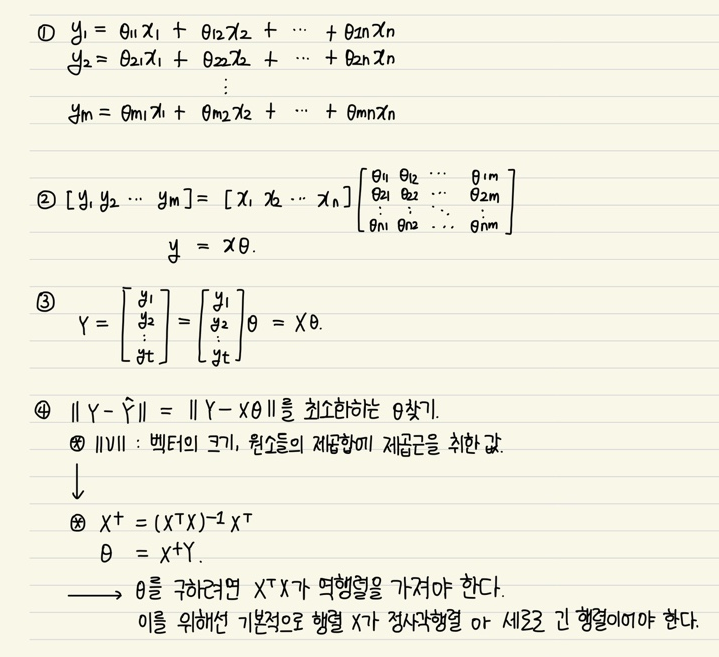 ① y₁ = θ₁₁x₁ + θ₁₂x₂ + ⋯ + θ₁nxn
y₂ = θ₂₁x₁ + θ₂₂x₂ + ⋯ + θ₂nxn
⋮
ym = θm₁x₁ + θm₂x₂ + ⋯ + θmnxn
② [y₁ y₂ ⋯ ym] = [x₁ x₂ ⋯ xn] [θ₁₁ θ₁₂ ⋯ θ₁m
θ₂₁ θ₂₂ ⋯ θ₂m
⋮ ⋮ ⋱ ⋮
θn₁ θn₂ ⋯ θnm]
y = xθ.
③ Y = [y₁ y₂ ⋮ yt] = [y₁ y₂ ⋮ yt] θ = Xθ.
④ ‖Y-Ŷ‖ = ‖Y-Xθ‖를 최소한하는 θ찾기.
⊛ ‖V‖ : 벡터의 크기, 원소들의 제곱합에 제곱근을 취한 값.
↓
⊛ X⁺ = (XᵀX)⁻¹Xᵀ
θ = X⁺Y.
→ θ를 구하려면 XᵀX가 역행렬을 가져야 한다.
이를 위해선 기본적으로 행렬 X가 정사각행렬 or 세로로 긴 행렬이어야 한다.